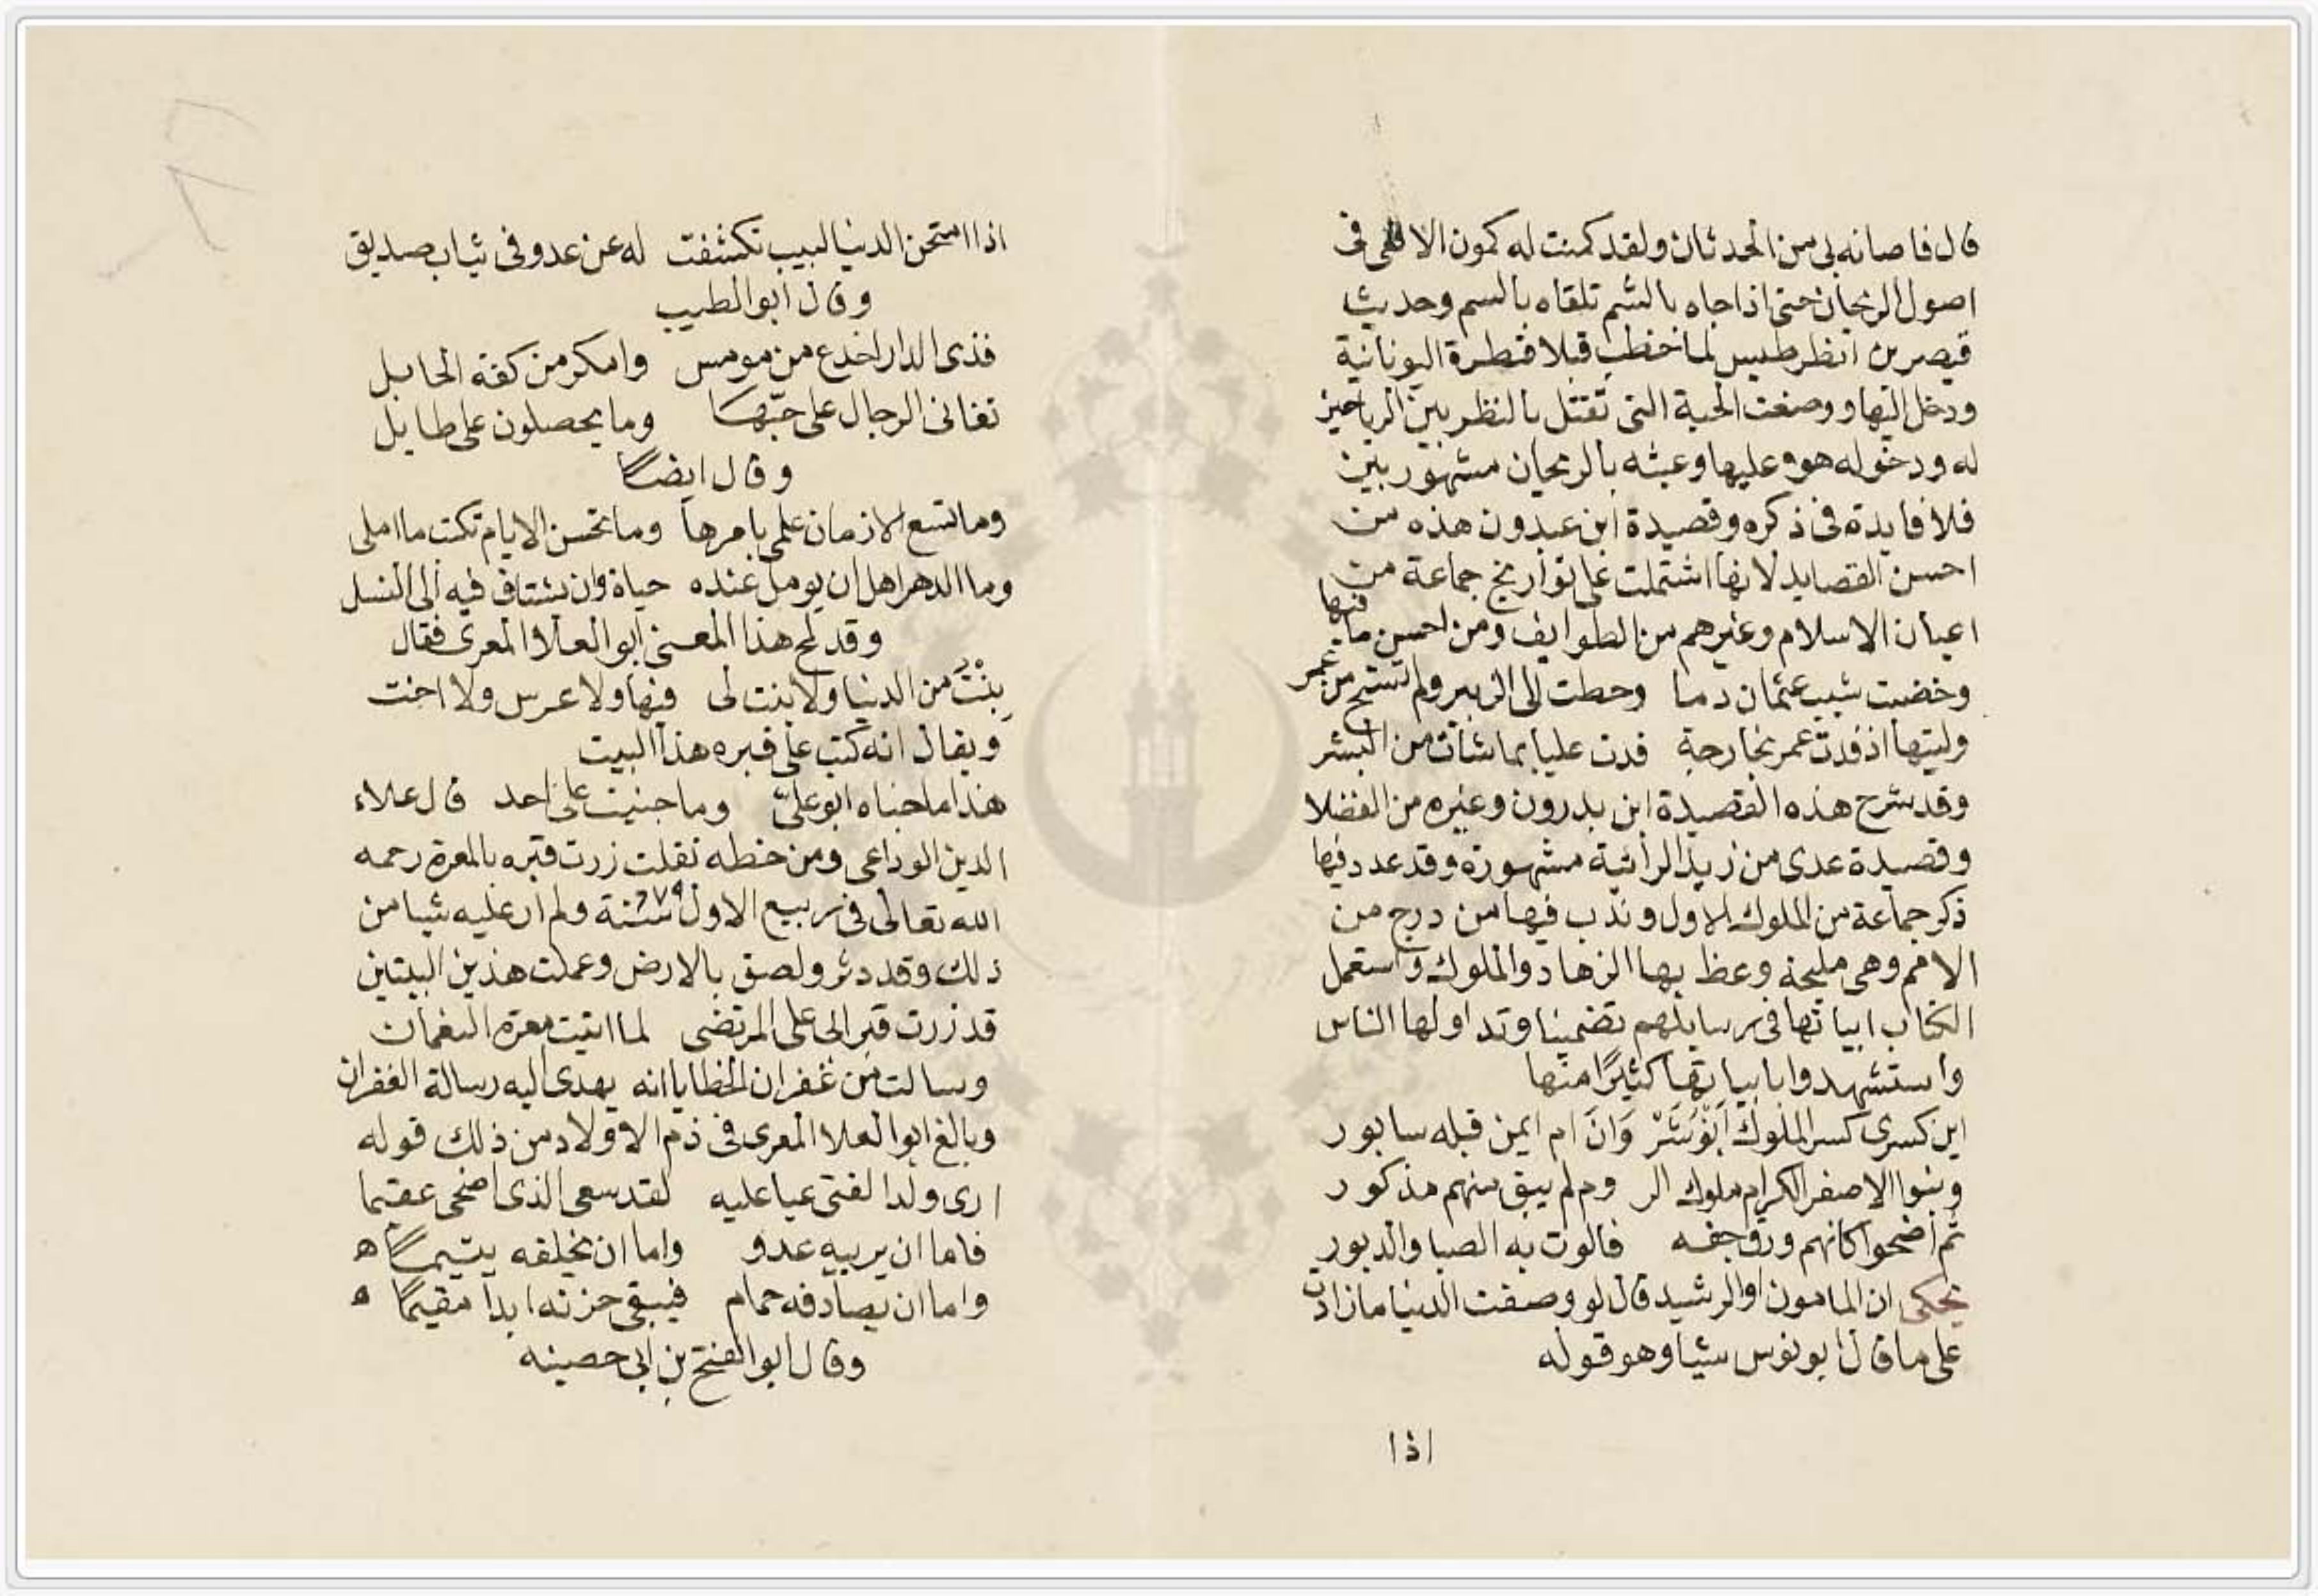 قال فاصانه لى من الحدثان ولقد كمنت له كمون الافعى فى
اصول الريحان حتى اذا جاه بالشم تلقاه بالسم وحديث
قيصر بن انظرطيس لما خطب قبلا فطرة اليونانية
ودخل اليها ووصفت الحية التى تقتل بالنظر بين الرياحين
له ودخوله هو عليها وعبثه بالريحان مشهور بين
فلا فايدة فى ذكره وقصيدة ابن عبدون هذه من
احسن القصايد لانها اشتملت على تواريخ جماعة من
اعيان الاسلام وغيرهم من الطوايف ومن احسن ما فيها
وخضبت شيب عثمان دما وحطت الى الزبير ولم تستح من عمر
وليتها اذ فدت عمر بخارجة فدت عليا بما شات من البشر
وقد شرح هذه القصيدة ابن بدرون وغيره من الفضلا
وقصيدة عدى من زيد الرائية مشهورة وقد عدد فيها
ذكر جماعة من الملوك الاول وندب فيها من درج من
الامم وهى مليحة وعظ بها الزهاد والملوك واستعمل
الكتاب ابياتها فى رسايلهم تضمينا وتداولها الناس
واستشهدوا بابياتها كثيرًا منها
اين كسرى كسر الملوك اَنْوُشَرْ وَانَ ام ايمن قبله سابور
وبنوا الاصفر الكرام ملوك الر وم لم يبق منهم مذكور
ثم اضحوا كانهم ورق جف فالوت به الصبا والدبور
يحكى ان المامون او الرشيد قال لو وصفت الدنيا ما زادت
على ما قال ابو نوس شيا وهو قوله
اذا
اذا امتحن الدنيا لبيب تكشفت له عن عدو فى ثياب صديق
وقال ابو الطيب
فذى الدار اخدع من مومس وامكر من كفة الحابل
تفانى الرجال على حبّها وما يحصلون على طايل
وقال ايضًا
وما تسع الازمان علمى بامرها وما تحسن الايام تكتب ما املى
وما الدهر اهل ان يومل عنده حياة وان يشتاق فيه الى النسل
وقد لمح هذا المعنى ابو العلا المعرى فقال
بِنْتُ من الدنيا ولا بنت لى فيها ولا عرس ولا اخت
ويقال انه كتب على قبره هذا البيت
هذا ما جناه ابو علىّ وما جنيت على احد قال علاء
الدين الوداعى ومن خطه نقلت زرت قبره بالمعرة رحمه
الله تعالى فى ربيع الاول سنة ٦٧٩ ولم ار عليه شيا من
ذلك وقد دثر ولصق بالارض وعملت هذين البيتين
قد زرت قبر الى على المرتضى لما اتيت معرة النعمان
وسالت من غفران الخطايا انه يهدى اليه رسالة الغفران
وبالغ ابو العلا المعرى فى ذم الاولاد من ذلك قوله
ارى ولد الفتى عبا عليه لقد سعى الذى اضحى عقيما
فاما ان يربيه عدو واما ان يخلفه يتيمًا ه
واما ان يصادفه حمام فيبقى حزنه ابدا مقيمًا ه
وقال ابو الفتح بن ابى حصينه